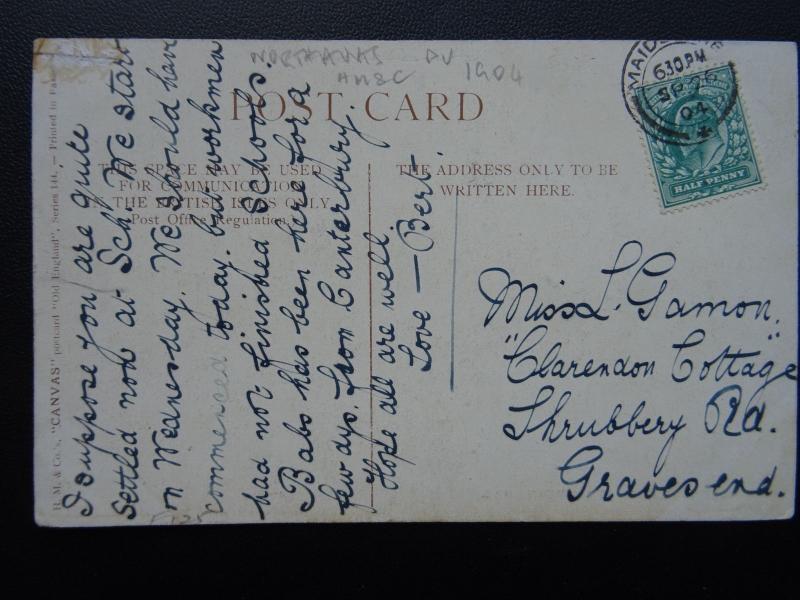 NORTHANTS DV 1904
POST CARD
THIS SPACE MAY BE USED
FOR COMMUNICATION
IN THE BRITISH ISLES ONLY
Post Office Regulation.
THE ADDRESS ONLY TO BE
WRITTEN HERE.
"CANVAS" postcard "Old England", Series 144. — Printed in
I suppose you are quite
settled now at Sch. We start
on Wednesday. We should have
commenced today. but workmen
had not finished Schools.
Babs has been here for a
few days. from Canterbury.
Hope all are well.
Love — Bert.
6.30 PM
SP 26
04
HALF PENNY
Miss L. Gamon.
"Clarendon Cottage"
Shrubbery Rd.
Gravesend.